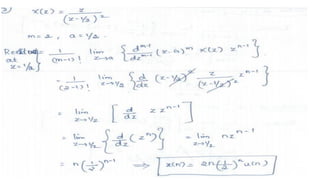 3) X(z) = z / (z - 1/2)²
m = 2, a = 1/2.
Residue at z = 1/2 } = 1/(m-1)! lim z→a { d^(m-1)/dz^(m-1) (z-a)^m X(z) z^(n-1) }
= 1/(2-1)! lim z→1/2 { d/dz (z-1/2)² z/(z-1/2)² z^(n-1) }
= lim z→1/2 [ d/dz z z^(n-1)
= lim z→1/2 { d/dz (z^n) } = lim z→1/2 n z^(n-1)
= n(1/2)^(n-1) ⟹ x(n) = 2n(1/2)^n u(n)